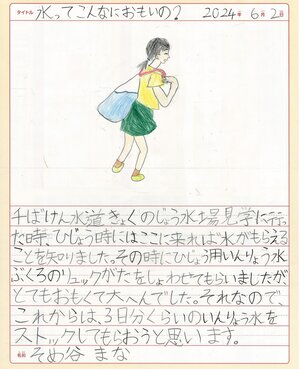 タイトル 水ってこんなにおもいの? 2024年 6月 2日
千ばけん水道きょくのじょう水場見学に行っ
た時、ひじょう時にはここに来れば水がもらえる
ことを知りました。その時にひじょう用いんりょう水
ぶくろのリュックがたをしょわせてもらいましたが、
とてもおもくて大へんでした。それなので、
これからは、3日分くらいのいんりょう水を
ストックしてもらおうと思います。
名前 そめ谷 まな